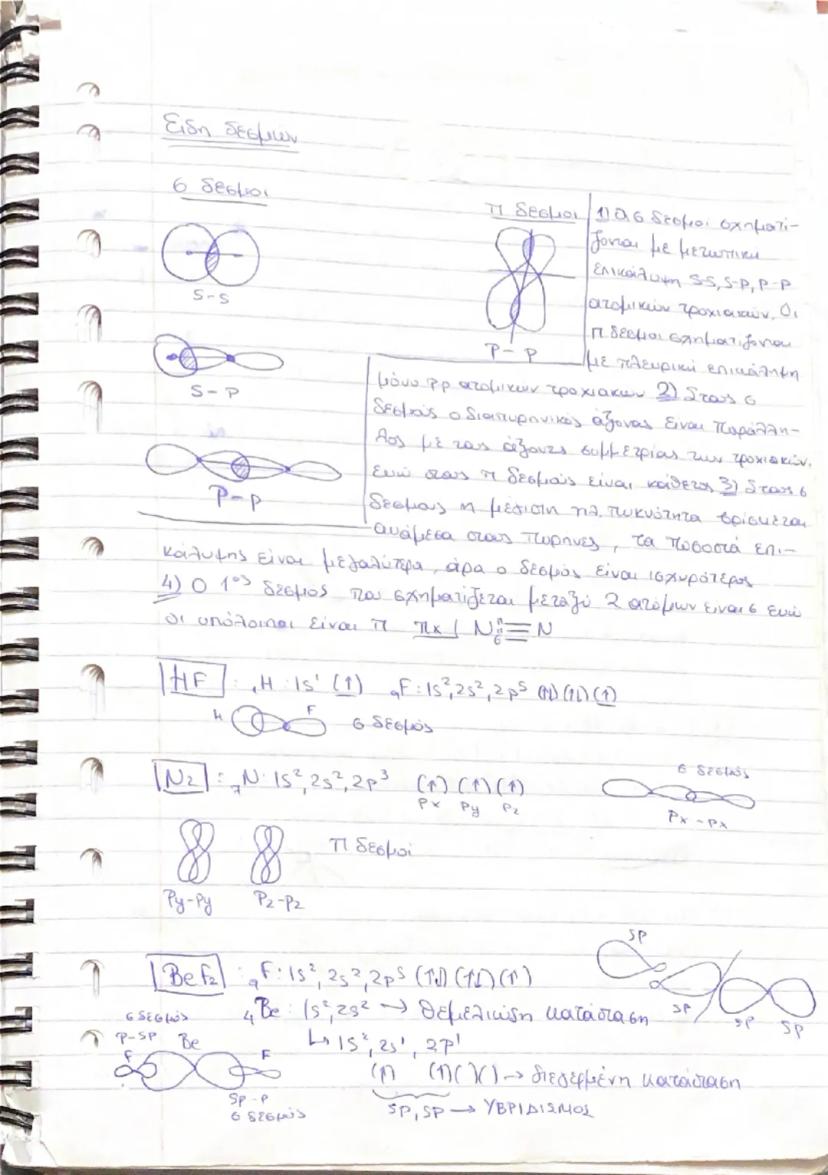 Είδη δεσμών
σ δεσμοί
s-s
s-p
p-p
π δεσμοί
p-p
1) Οι σ δεσμοί σχηματί-
ζονται με μετωπική
επικάλυψη s-s, s-p, p-p
ατομικών τροχιακών. Οι
π δεσμοί σχηματίζονται
με πλευρική επικάλυψη
μόνο p-p ατομικών τροχιακών 2) Στους σ
δεσμούς ο διαπυρηνικός άξονας είναι παράλλη-
λος με τους άξονες συμμετρίας των τροχιακών,
ενώ στους π δεσμούς είναι κάθετος 3) Στους σ
δεσμους η μέγιστη ηλ. πυκνότητα βρίσκεται
ανάμεσα στους πυρηνες, τα ποσοστά επι-
κάλυψης είναι μεγαλύτερα, άρα ο δεσμός είναι ισχυρότερος
4) Ο 1ος δεσμός που σχηματίζεται μεταξύ 2 ατόμων είναι σ ενώ
οι υπόλοιποι είναι π πχ | N π π σ ≡ N
HF : ₁H : 1s¹ (↑) ₉F : 1s², 2s², 2p⁵ (↑↓)(↑↓)(↑)
H F σ δεσμός
N₂ : ₇N : 1s², 2s², 2p³ (↑) (↑) (↑)
px py pz
σ δεσμός
Px - Px
π δεσμοί
Py-Py Pz-Pz
BeF₂ : ₉F : 1s², 2s², 2p⁵ (↑↓) (↑↓) (↑)
₄Be : 1s², 2s² → Θεμελιώδη κατάσταση
↳ 1s², 2s¹, 2p¹
(↑) (↑)( )( ) → διεγερμένη κατάσταση
sp, sp → ΥΒΡΙΔΙΣΜΟΣ
σ δεσμός
p-sp Be
F F
sp-p
σ δεσμός
sp
sp
sp sp